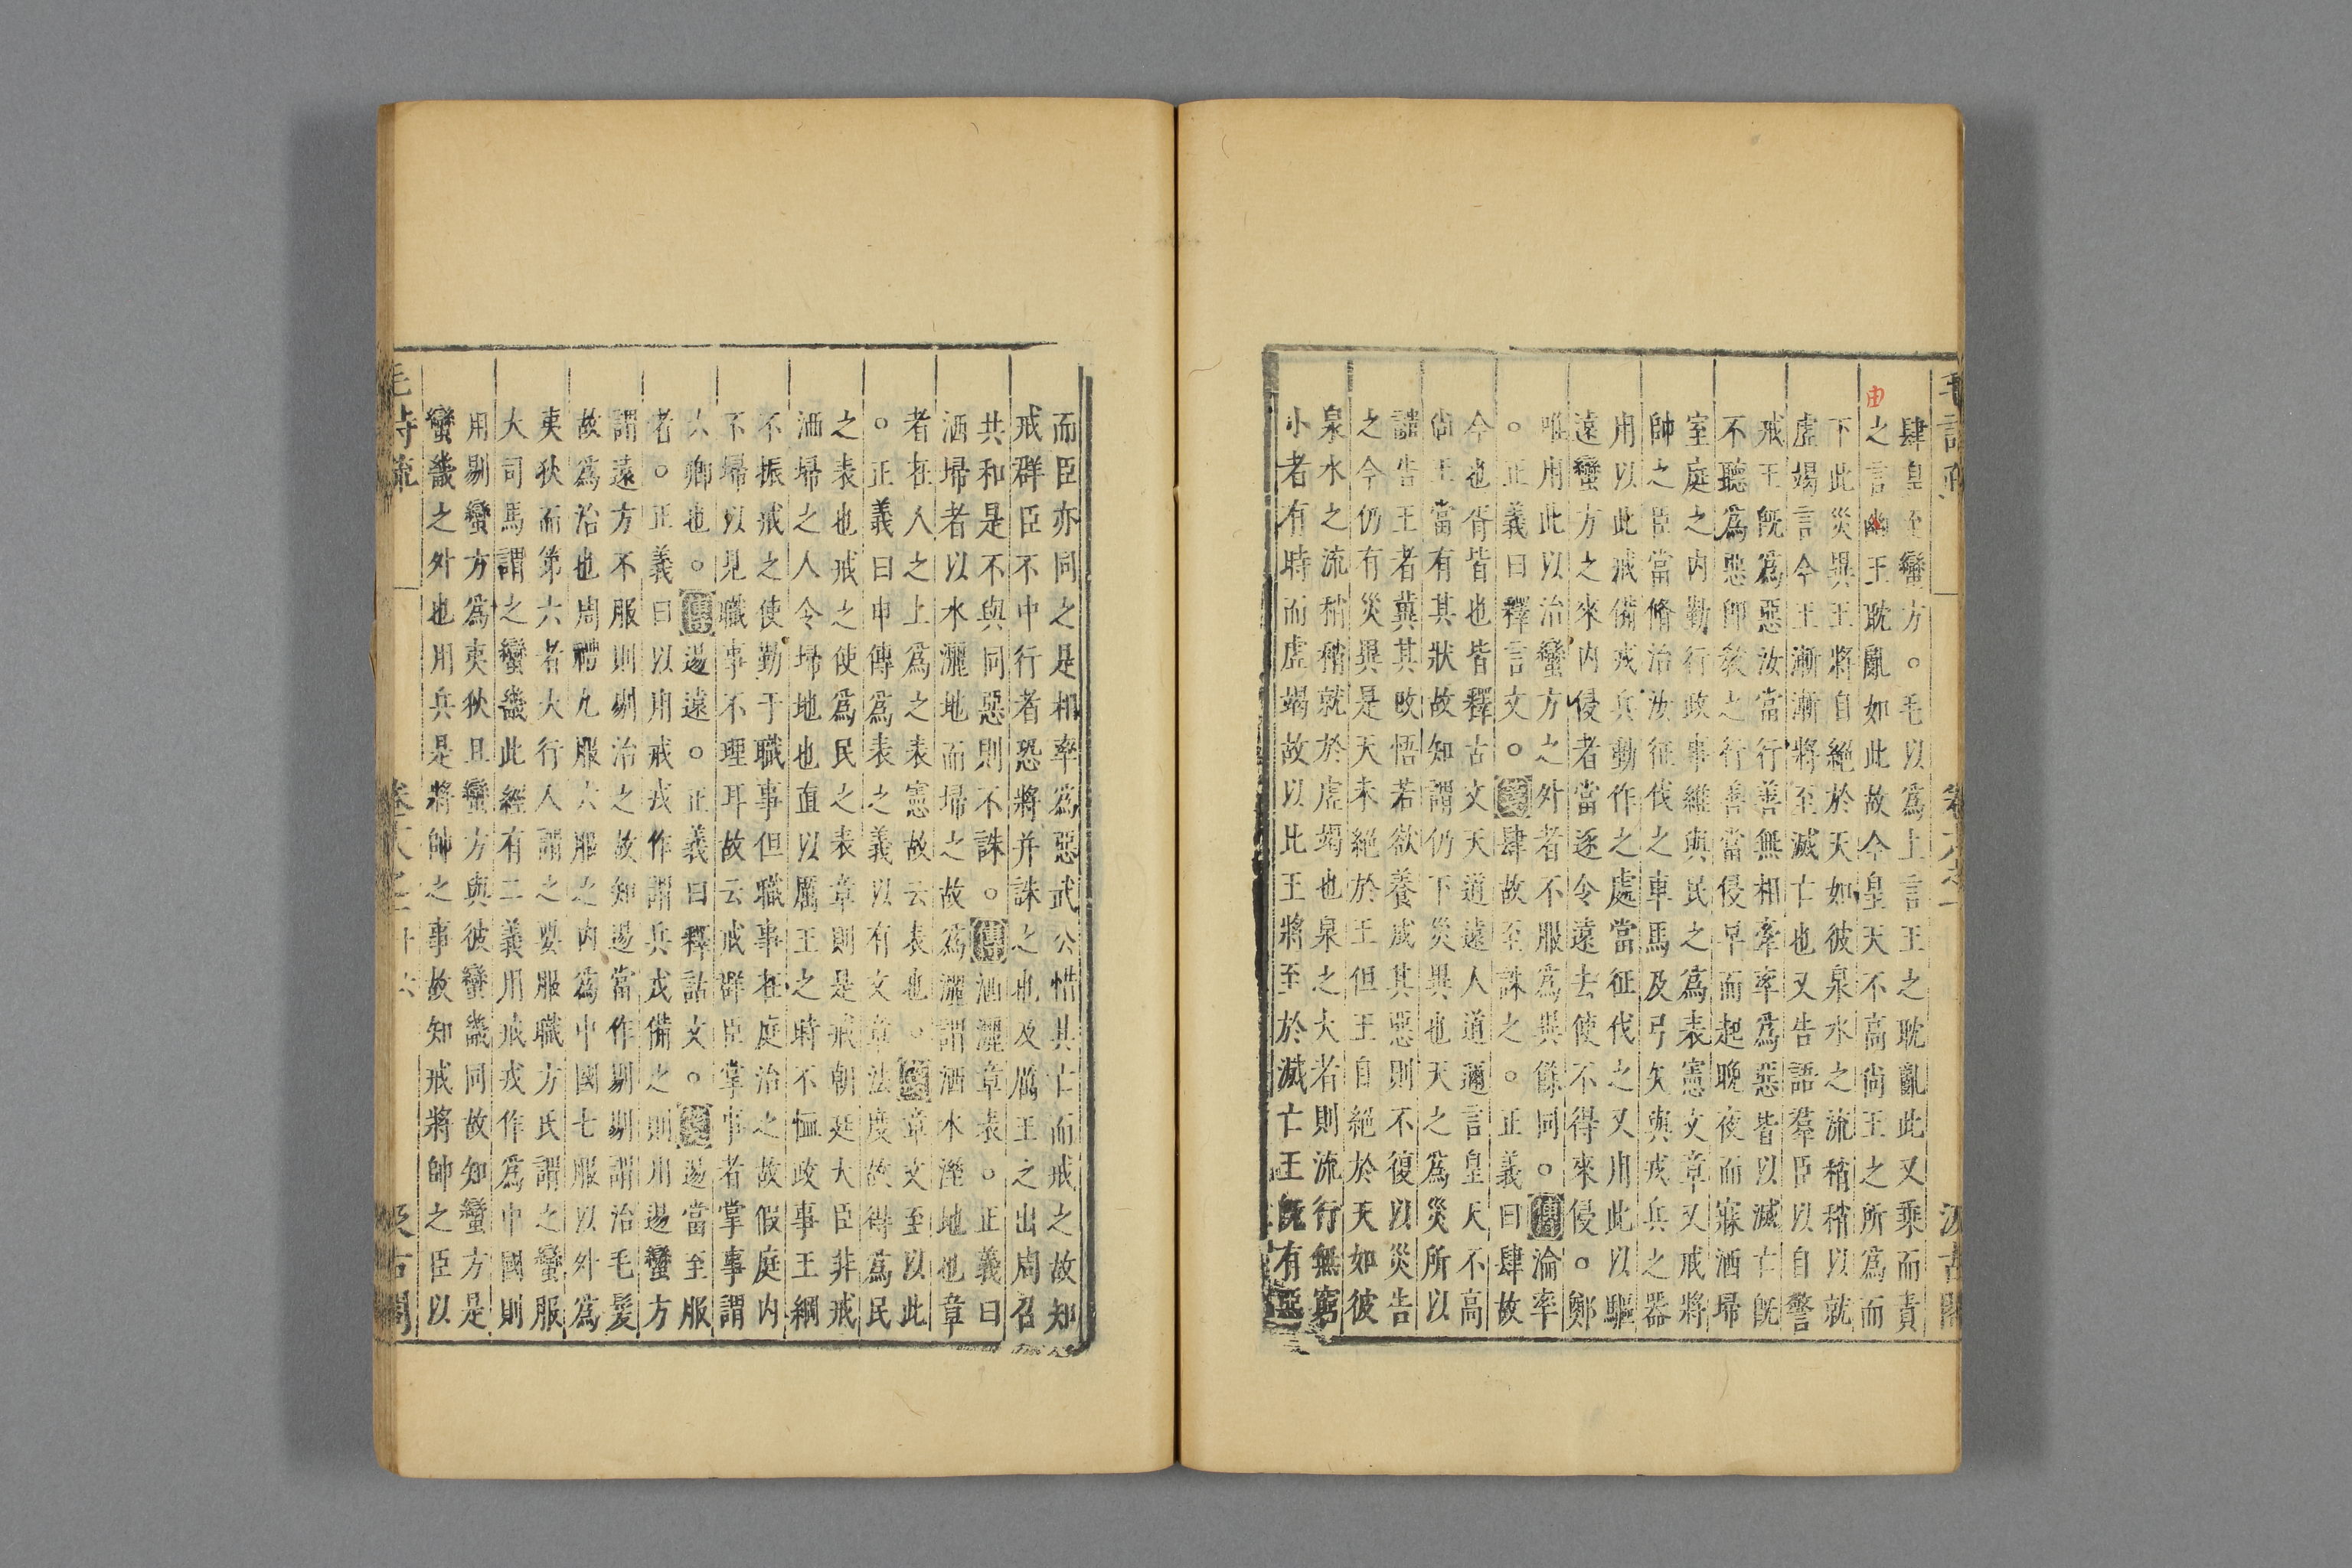 肆皇至蠻方○毛以爲上言王之耽亂此又乘而責
之言幽王耽亂如此故今皇天不高尙王之所爲而
由
下此災異王將自絕於天如彼泉水之流稍稍以就
虛竭言今王漸漸將至滅亡也又告語羣臣以自警
戒王旣爲惡汝當行善無相牽率爲惡皆以滅亡旣
不聽爲惡卽敎之行善當侵早而起晚夜而寐洒埽
室庭之內勤行政事維與民之爲表憲文章又戒將
帥之臣當脩治汝征伐之車馬及弓矢與戎兵之器
用以此戒備戎兵動作之處當征伐之又用此以驅
遠蠻方之來內侵者當逐令遠去使不得來侵○鄭
唯用此以治蠻方之外者不服爲異餘同○傳淪率
○正義曰釋言文○箋肆故至誅之○正義曰肆故
今也胥皆也皆釋古文天道遠人道邇言皇天不高
尙王當有其狀故知謂仍下災異也天之爲災所以
譴告王者冀其改悟若欲養成其惡則不復以災告
之今仍有災異是天未絕於王但王自絕於天如彼
泉水之流稍稍就於虛竭也泉之大者則流行無窮
小者有時而虛竭故以比王將至於滅亡王旣有惡
而臣亦同之是相率爲惡武公惜其亡而戒之故知
戒群臣不中行者恐將并誅之也及厲王之出周召
共和是不與同惡則不誅○傳洒灑章表○正義曰
洒埽者以水灑地而埽之故爲灑謂洒水溼地也章
者在人之上爲之表憲故云表也○箋章文至以此
○正義曰申傳爲表之義以有文章法度故得爲民
之表也戒之使爲民之表章則是戒朝廷大臣非戒
洒埽之人令埽地也直以厲王之時不恤政事王綱
不振戒之使勤于職事但職事在庭治之故假庭內
不埽以見職事不理耳故云戒群臣掌事者掌事謂
六卿也○傳逷遠○正義曰釋詁文○箋逷當至服
者○正義曰以用戒戎作謂兵戎備之則用逷蠻方
謂遠方不服則剔治之故知逷當作剔剔謂治毛髮
故爲治也周禮九服六服之內爲中國七服以外爲
夷狄而第六者大行人謂之要服職方氏謂之蠻服
大司馬謂之蠻畿此經有二義用戒戎作爲中國則
用剔蠻方爲夷狄且蠻方與彼蠻畿同故知蠻方是
蠻畿之外也用兵是將帥之事故知戒將帥之臣以